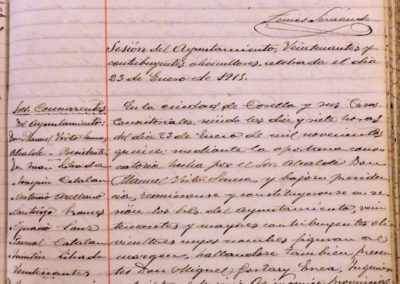 Sesión del Ayuntamiento, Veintenantes y
contribuyentes olivicultores, celebrada el día
23 de Enero de 1915.
Sres. Concurrentes
del Ayuntamiento
Don Manuel
Alcalde - Presidente
Don Juan Librada
Joaquín Catalán
Antonio Arellano
Santiago Francés
Ignacio Sanz
Manuel Catalán
Librado
Veintenantes
En la ciudad de Corella y sus Casas
Consistoriales siendo las diez y siete horas
del día 23 de Enero de mil novecientos
quince mediante la oportuna convo-
catoria hecha por el Sr. Alcalde Don
Manuel y bajo su presiden-
cia, reuniéronse y constituyéronse en se-
sión los Sres. del Ayuntamiento, vein-
tenantes y mayores contribuyentes oli-
vicultores cuyos nombres figuran al
margen, hallándose también presen-
tes Don Miguel Gortary Errea, Ingeniero